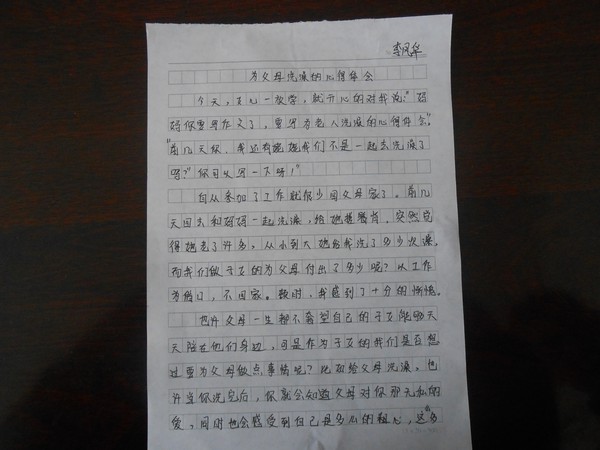 李风华
为父母洗澡的心得体会
今天，女儿一放学，就开心的对我说："妈
妈你要写作文了，要写为老人洗澡的心得体会。"
"前几天你、我还有姥姥我们不是一起去洗澡了
吗？你可以写一下呀！"
自从参加了工作就很少回父母家了。前几
天回去和妈妈一起洗澡，给她搓背，突然觉
得她老了许多，从小到大她给我洗了多少次澡。
而我们做子女的为父母付出了多少呢？以工作
为借口，不回家。顿时，我感到了十分的惭愧。
也许父母一生都不奢望自己的子女能够天
天陪在他们身边，可是作为子女的我们是否想
过要为父母做点事情呢？比如给父母洗澡，也
许当你洗完后，你就会知道父母对你那无私的
爱，同时也会感受到自己是多么的粗心，这多